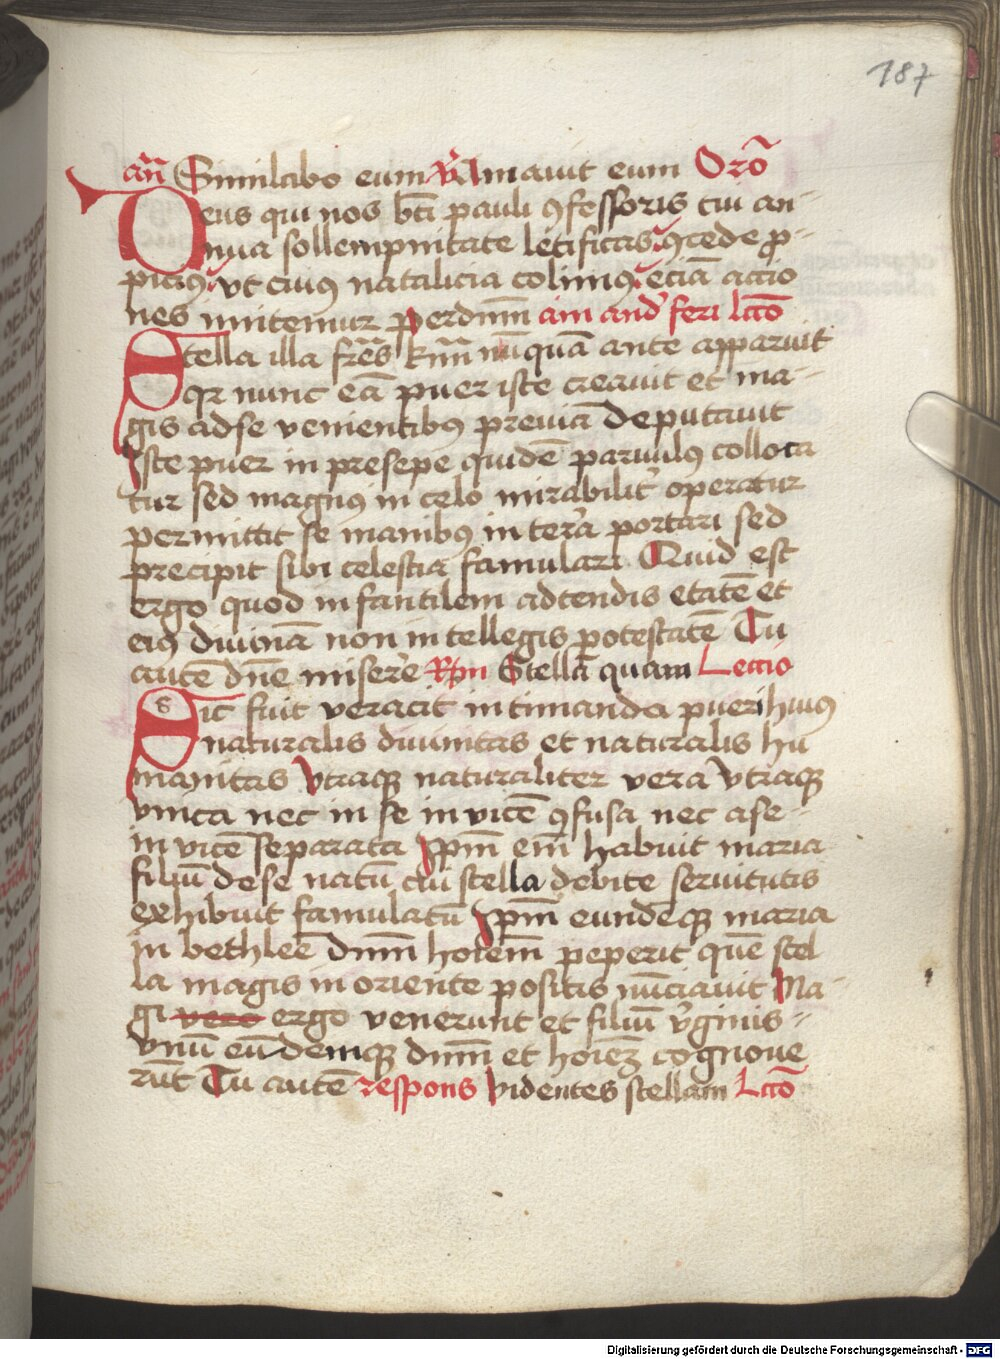 187
an̄ Similabo eum ℣ Amauit eum Oro᷒
Deus qui nos bti̅ pauli ꝯfessoris tui an-
nua sollempnitate letificas ꝯcede ꝓ-
piciꝰ vt cuiꝰ natalicia colimꝰ eciā actio
nes imitemur ꝑ dnm̄ ain and' feri Lcō
Stella illa fr̄es km̄ nūquā ante apparuit
qr nunc eā puer iste creauit et ma-
gis ad se venientibꝰ preuiā deputauit
Iste puer in presepe quidē paruulꝰ colloca
tur sed magnꝰ in celo mirabilit' operatur
permittit se manibꝰ in terra portari sed
precipit sibi celestia famulari Quid est
ergo quod in fantilem adtendis etatē et
eiꝰ diuinā non in tellegis potestatē Tu
autē dn̄e misere Rm̄ Stellā quam Lectio
Sic fuit veracit in timanda pueri huiꝰ
naturalis diuinitas et naturalis hu
manitas vtraqꝫ naturaliter vera vtraqꝫ
vnita nec in se in vicē ꝯfusa nec a se-
in vicē separata Ipm̄ em̄ habuit maria
filiū de se natū cui stella debite seruitutis
exhibuit famulatū Ipm̄ eundēqꝫ maria
in bethleē dnm̄ hoīem peperit quē stel
la magis in oriente positis nūciauit Ma-
gi vero ergo venerunt et filiū v'ginis-
vnū eūdemqꝫ dnm̄ et hoīeꝫ cognoue
rūt Tu autē respons Videntes stellam Lcō
Digitalisierung gefördert durch die Deutsche Forschungsgemeinschaft - DFG